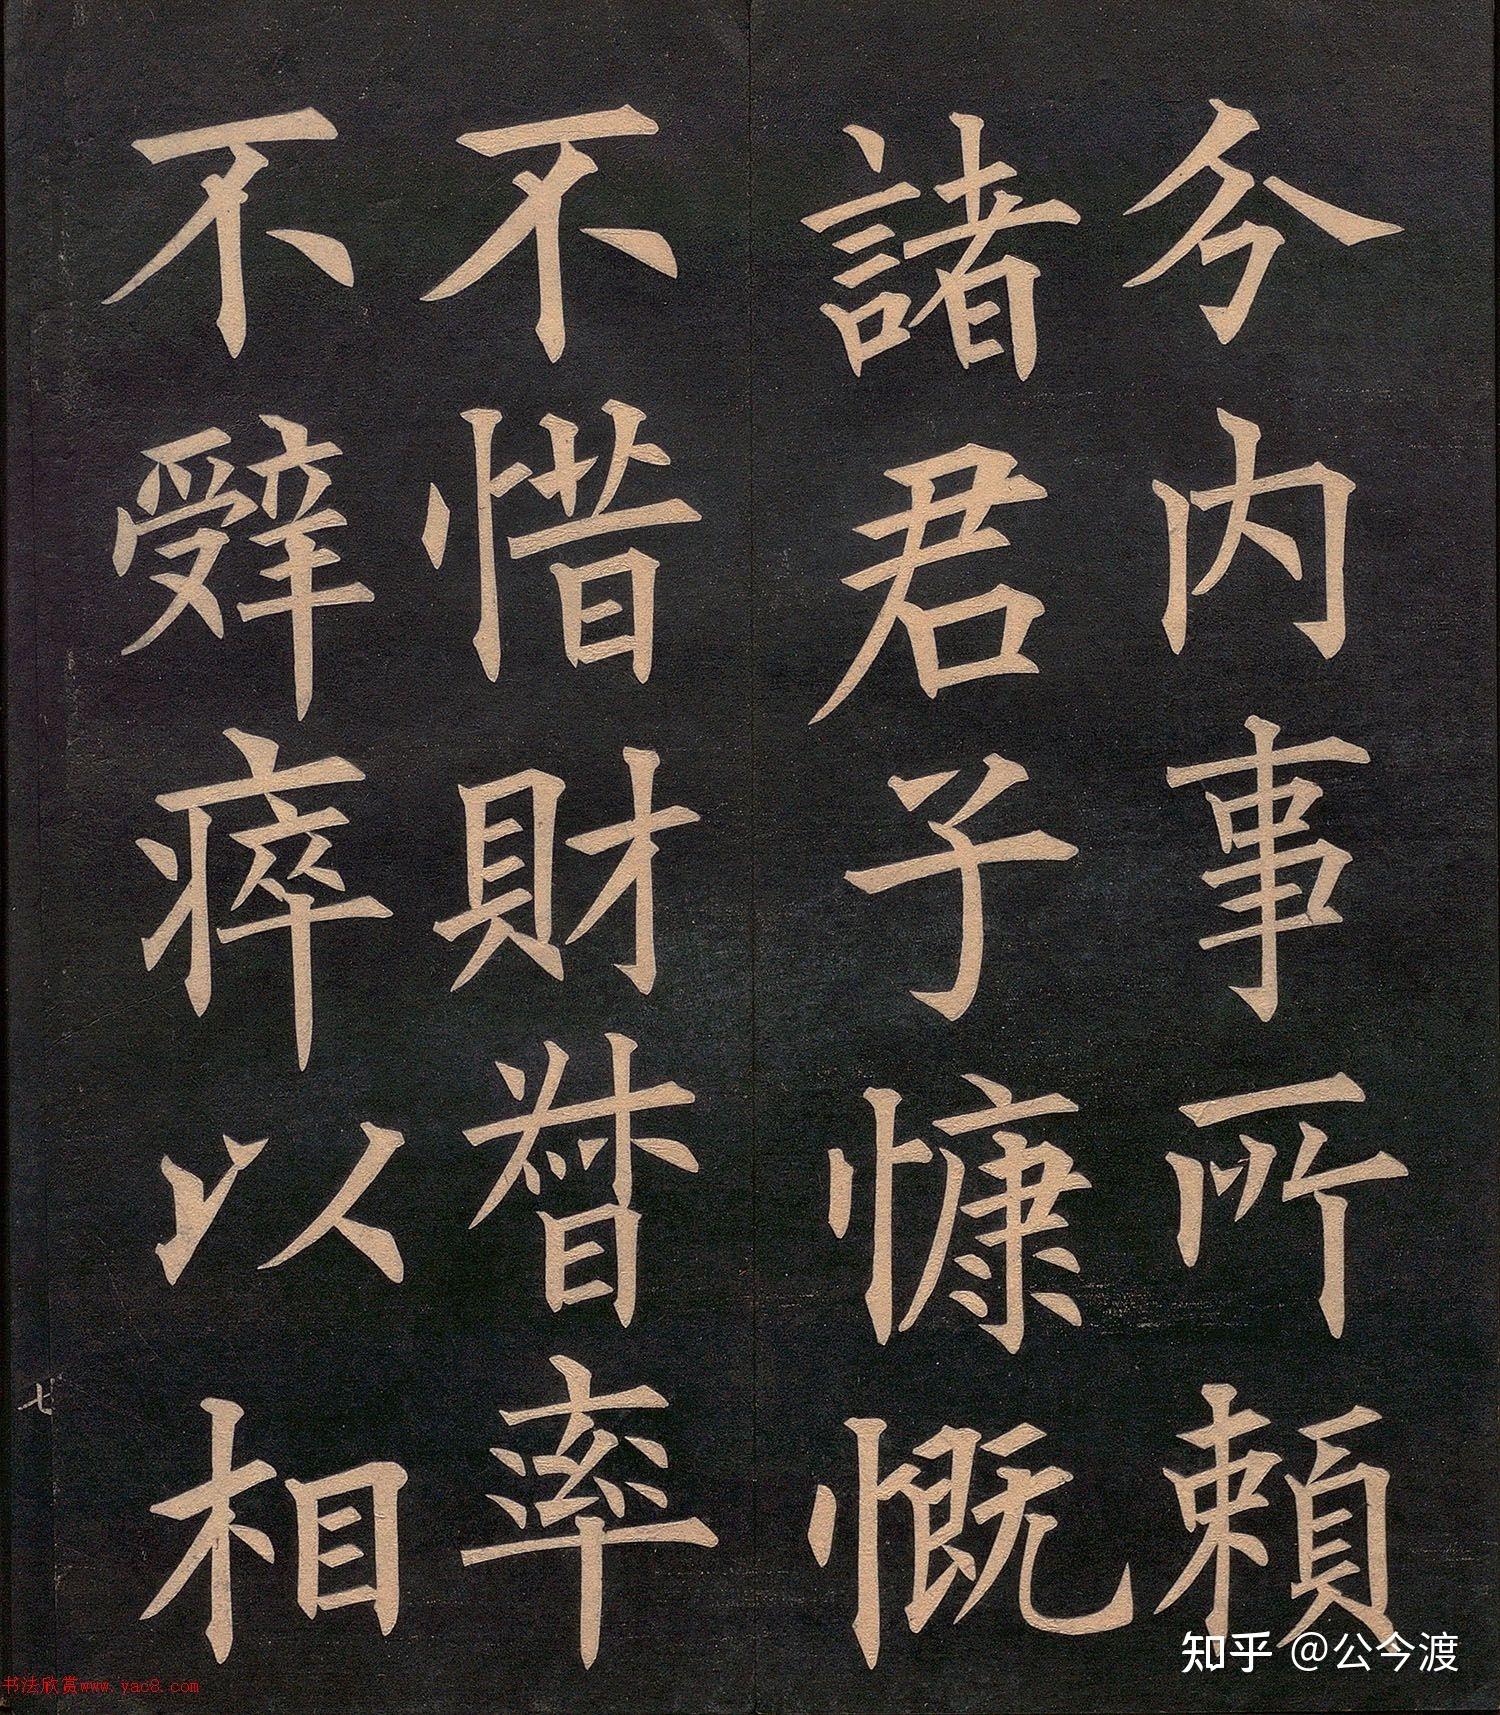 今内事所賴
諸君子慷慨
不惜財𣈆率
不辤瘁以相
七
知乎 @公今渡
书法欣赏www.yac8.com